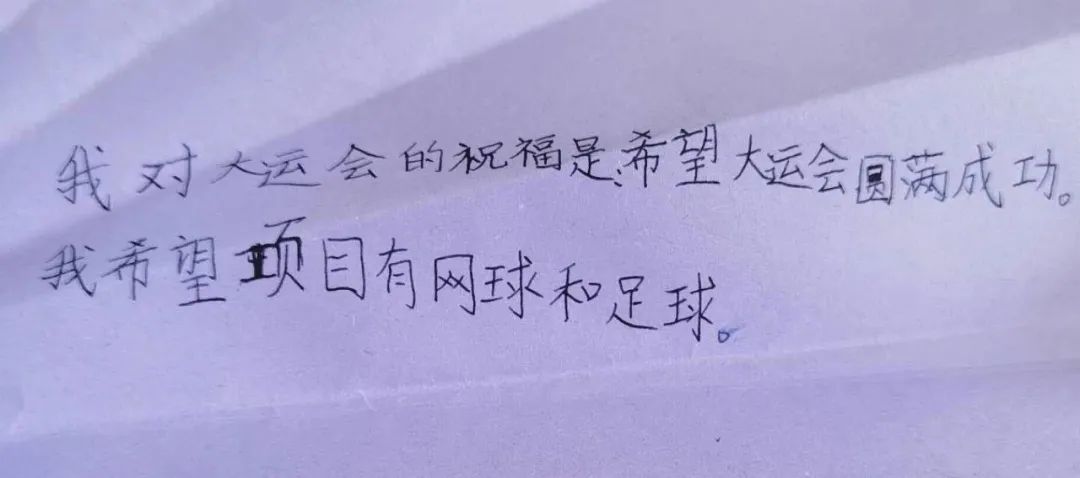 我对大运会的祝福是:希望大运会圆满成功。
我希望项目有网球和足球。